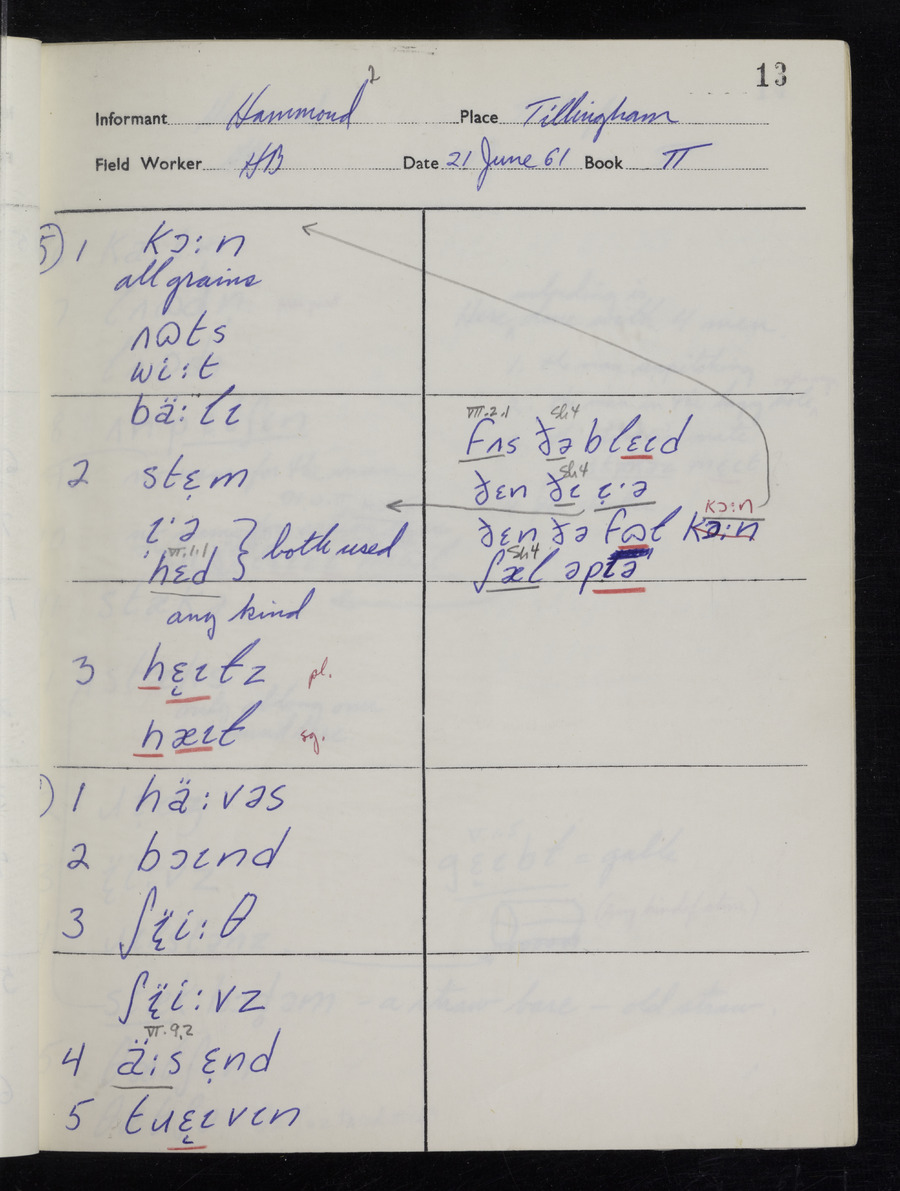 13
2
Informant Hammond Place Tillingham
Field Worker HB Date 21 June 61 Book II
5) 1 kɔ:n
all grains
ʌɷts
wi:t
bä:lɩ
2 stɛ̣m
ɩ̣·ə
VI.1.1
hɛd } both used
any kind
3 hɛ̣ɩtz pl.
hæɩt sg.
) 1 hä:vəs
2 bɔɩnd
3 ʃɩ̣̈i:θ
ʃɩ̣̈i:vz
VI.9.2
4 ä:s ɛ̣nd
5 tuɛ̣ɩvɩn
VII.2.1 Sh4
fʌs ðə blɛɩd
Sh4
ðɛn ðɩ ɩ̣·ə
kɔ:n
ðɛn ðə fɷl kɔ:n
Sh4
ʃæl əptə